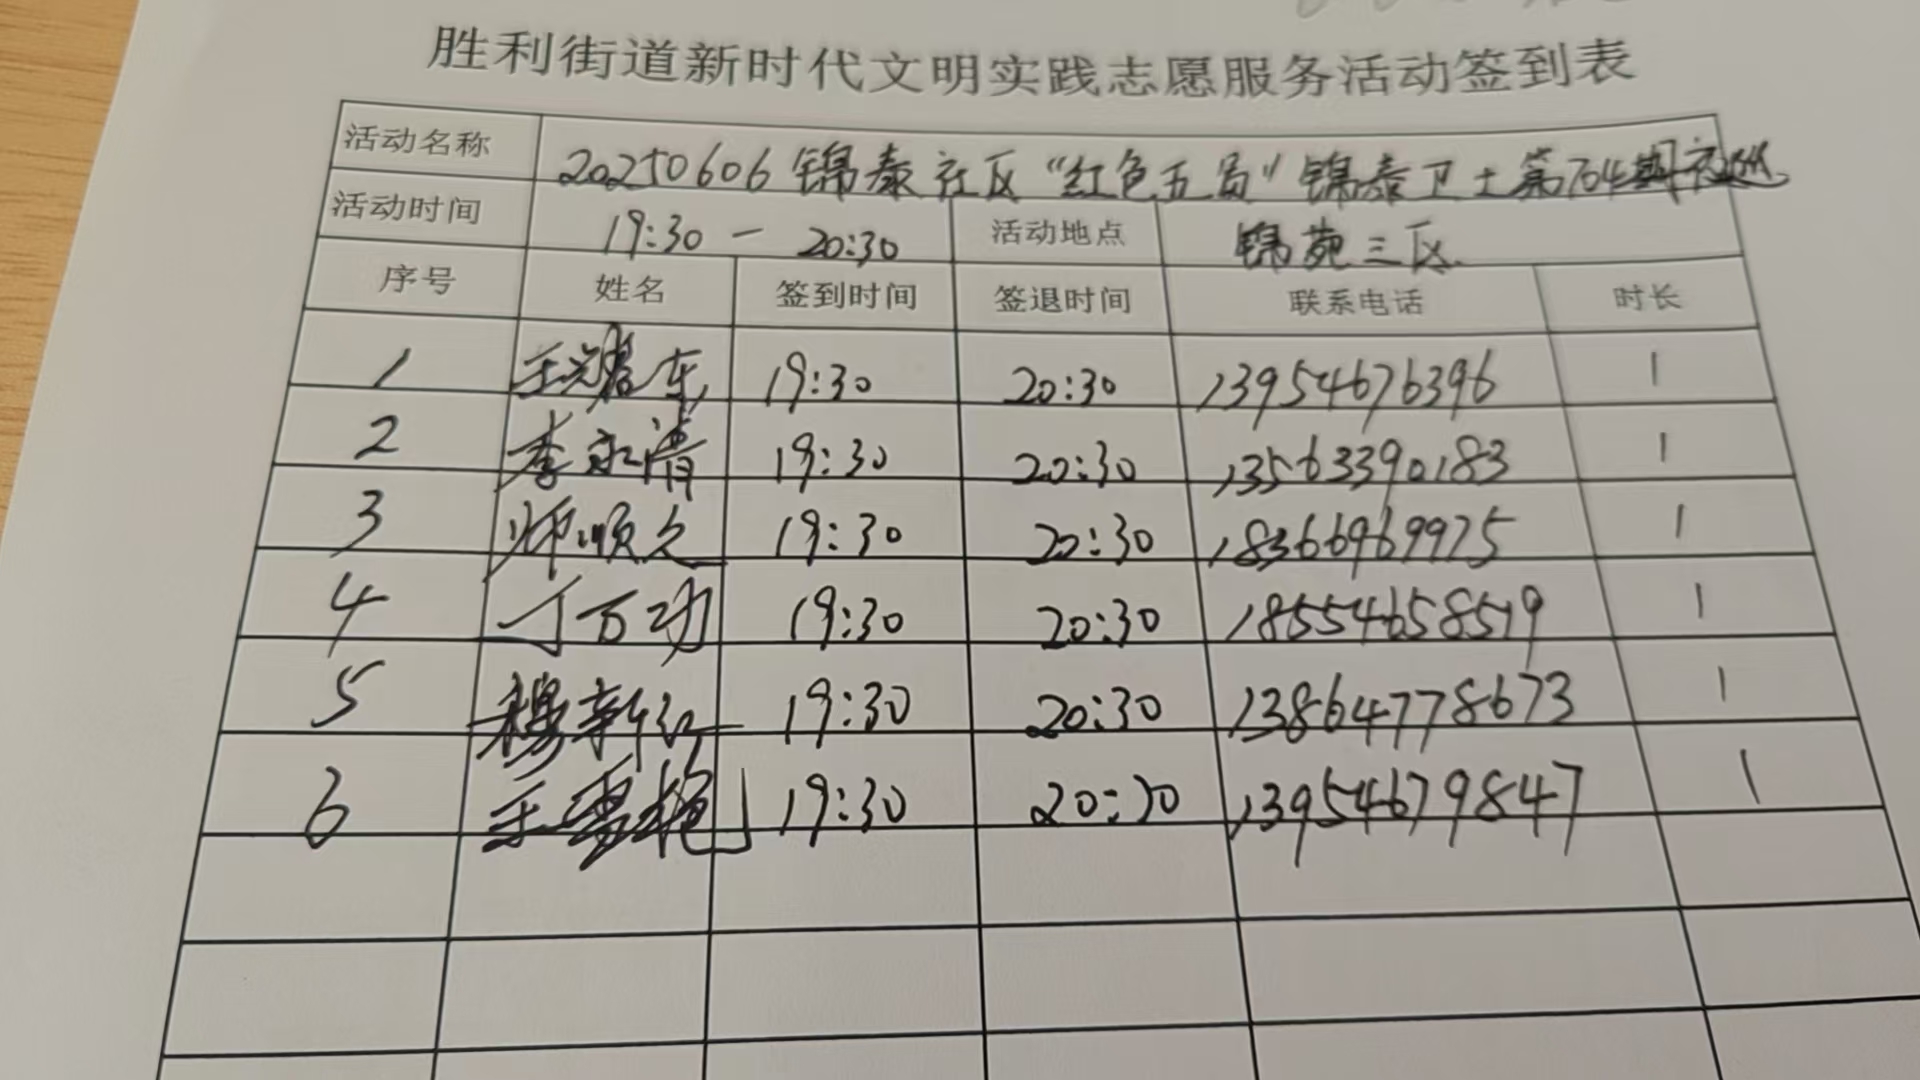 胜利街道新时代文明实践志愿服务活动签到表
活动名称 20250606锦泰社区“红色五员”锦泰卫士第704期夜巡
活动时间 19:30 — 20:30 活动地点 锦苑三区
序号 姓名 签到时间 签退时间 联系电话 时长
1 王 东 19:30 20:30 13954676396 1
2 李永清 19:30 20:30 13563390183 1
3 师顺之 19:30 20:30 18366969975 1
4 丁万功 19:30 20:30 18554658519 1
5 穆新红 19:30 20:30 13864778673 1
6 王雪艳 19:30 20:30 13954679847 1